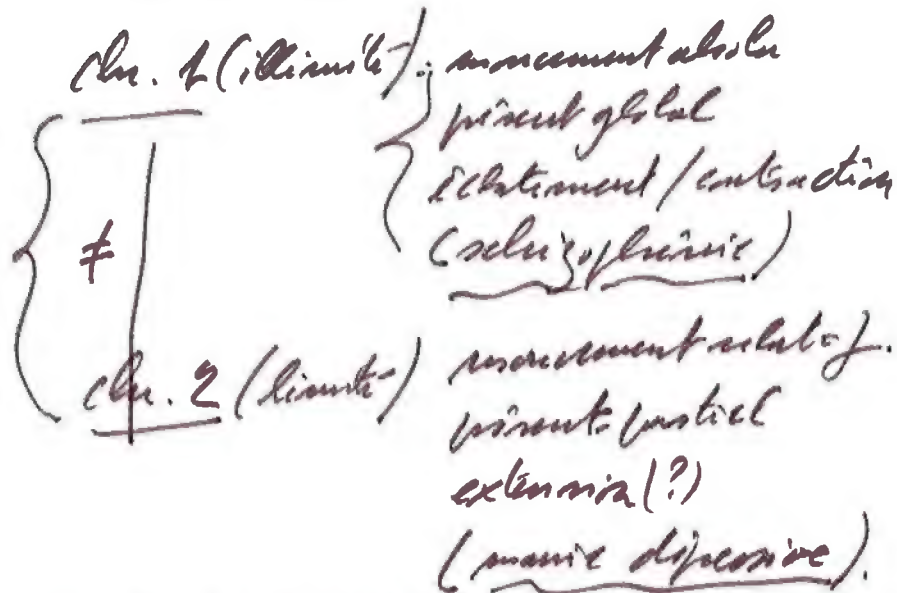 chr. 1 (illimité) : mouvement absolu
présent global
éclatement / contraction
(schizophrénie)
≠
chr. 2 (limité) mouvement relatif.
présent partiel
extension (?)
(manie dépressive).